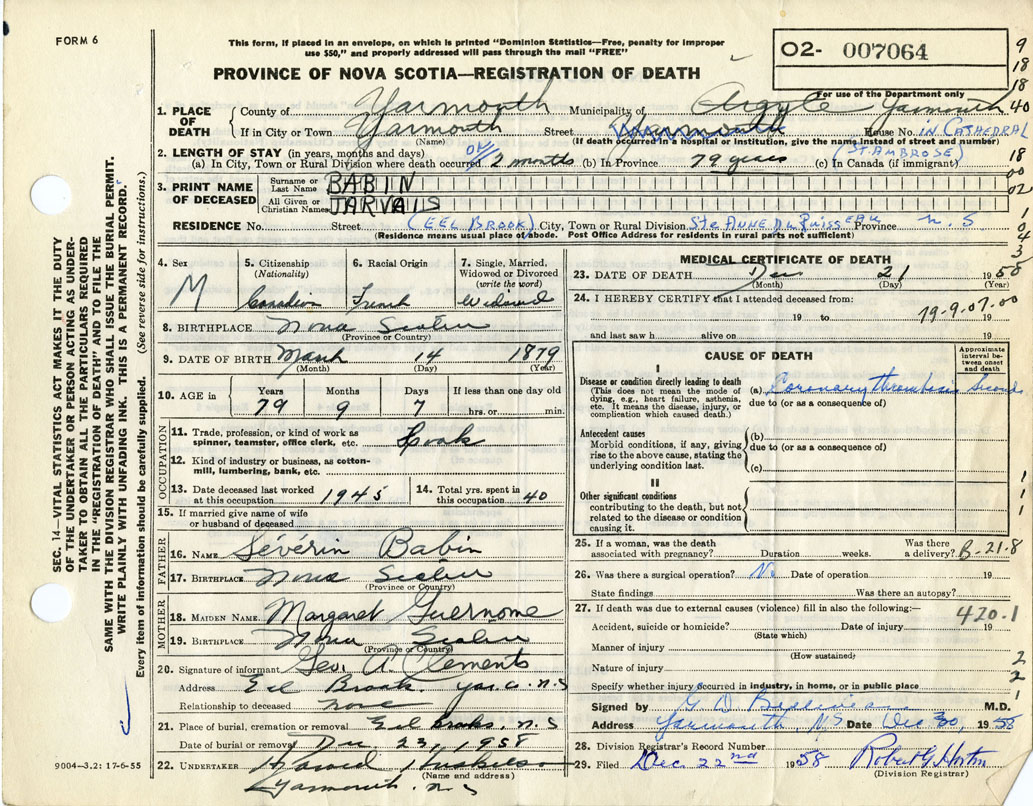 FORM 6
This form, if placed in an envelope, on which is printed "Dominion Statistics—Free, penalty for improper
use $50," and properly addressed will pass through the mail "FREE"
O2- 007064
PROVINCE OF NOVA SCOTIA—REGISTRATION OF DEATH
For use of the Department only
1. PLACE OF DEATH
County of Yarmouth Municipality of Argyle Yarmouth
If in City or Town Yarmouth Street House No. in CATHEDRAL
(Name) (If death occurred in a hospital or institution, give the name instead of street and number)
(ST. AMBROSE)
2. LENGTH OF STAY (in years, months and days)
(a) In City, Town or Rural Division where death occurred 2 months (b) In Province 79 years (c) In Canada (if immigrant)
3. PRINT NAME OF DECEASED
Surname or Last Name BABIN
All Given or Christian Names JARVAIS
RESIDENCE No. Street (EEL BROOK) City, Town or Rural Division Ste Anne Du Ruisseau Province N. S
(Residence means usual place of abode. Post Office Address for residents in rural parts not sufficient)
4. Sex
M
5. Citizenship
(Nationality)
Canadian
6. Racial Origin
French
7. Single, Married,
Widowed or Divorced
(write the word)
Widowed
8. BIRTHPLACE Nova Scotia
(Province or Country)
9. DATE OF BIRTH March 14 1879
(Month) (Day) (Year)
10. AGE in Years Months Days If less than one day old
79 9 7 hrs. or min.
OCCUPATION
11. Trade, profession, or kind of work as
spinner, teamster, office clerk, etc. Cook
12. Kind of industry or business, as cotton-
mill, lumbering, bank, etc.
13. Date deceased last worked
at this occupation 1945
14. Total yrs. spent in
this occupation 40
15. If married give name of wife
or husband of deceased
FATHER
16. NAME Sévérin Babin
17. BIRTHPLACE Nova Scotia
(Province or Country)
MOTHER
18. MAIDEN NAME Margaret
19. BIRTHPLACE Nova Scotia
(Province or Country)
20. Signature of informant Geo. A. Clements
Address Eel Brook, Yar. Co. N.S
Relationship to deceased none
21. Place of burial, cremation or removal Eel Brook, N.S
Date of burial or removal Dec 23, 1958
22. UNDERTAKER
(Name and address)
Yarmouth. N.S
MEDICAL CERTIFICATE OF DEATH
23. DATE OF DEATH Dec 21 1958
(Month) (Day) (Year)
24. I HEREBY CERTIFY that I attended deceased from:
19 to 19-9-07.00 19
and last saw h alive on 19
CAUSE OF DEATH
Approximate
interval be-
tween onset
and death
I
Disease or condition directly leading to death
(This does not mean the mode of
dying, e.g., heart failure, asthenia,
etc. It means the disease, injury, or
complication which caused death.)
(a) Coronary thrombosis
due to (or as a consequence of)
Antecedent causes
Morbid conditions, if any, giving
rise to the above cause, stating the
underlying condition last.
(b)
due to (or as a consequence of)
(c)
II
Other significant conditions
contributing to the death, but not
related to the disease or condition
causing it.
25. If a woman, was the death
associated with pregnancy? Duration weeks. Was there
a delivery? B-21-8
26. Was there a surgical operation? No Date of operation 19
State findings Was there an autopsy?
27. If death was due to external causes (violence) fill in also the following:—
420.1
Accident, suicide or homicide? Date of injury 19
(State which)
Manner of injury
(How sustained)
Nature of injury
Specify whether injury occurred in industry, in home, or in public place
Signed by M.D.
Address Yarmouth, N.S Date Dec 30, 1958
28. Division Registrar's Record Number
29. Filed Dec. 22nd 1958 Robert G. Horton
(Division Registrar)
9
18
18
40
18
00
02
1
0
4
3
8
1
1
1
2
2
1
SEC. 14—VITAL STATISTICS ACT MAKES IT THE DUTY
OF THE UNDERTAKER OR PERSON ACTING AS UNDER-
TAKER TO OBTAIN ALL THE PARTICULARS REQUIRED
IN THE "REGISTRATION OF DEATH" AND TO FILE THE
SAME WITH THE DIVISION REGISTRAR WHO SHALL ISSUE THE BURIAL PERMIT.
WRITE PLAINLY WITH UNFADING INK. THIS IS A PERMANENT RECORD.
Every item of information should be carefully supplied. (See reverse side for instructions.)
9004—3.2: 17-6-55